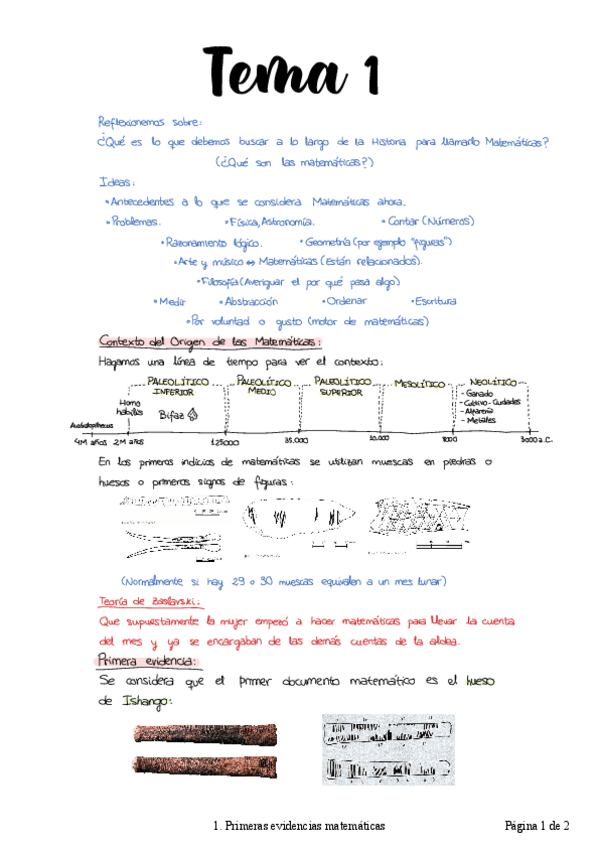 Tema 1
Reflexionemos sobre:
¿Qué es lo que debemos buscar a lo largo de la Historia para llamarlo Matemáticas?
(¿Qué son las matemáticas?)
Ideas:
• Antecedentes a lo que se considera Matemáticas ahora.
• Problemas. • Física, Astronomía. • Contar (Números)
• Razonamiento lógico. • Geometría (por ejemplo "figuras")
• Arte y música ↔ Matemáticas (Están relacionados).
• Filosofía (Averiguar el por qué pasa algo)
• Medir • Abstracción • Ordenar • Escritura
• Por voluntad o gusto (motor de matemáticas)
Contexto del Origen de las Matemáticas:
Hagamos una línea de tiempo para ver el contexto:
PALEOLÍTICO INFERIOR PALEOLÍTICO MEDIO PALEOLÍTICO SUPERIOR MESOLÍTICO NEOLÍTICO
Homo habilis Bifaz
- Ganado
- Cultivo - Ciudades
- Alfarería
- Metales
Australopithecus
4M años 2M años 125000 35.000 10.000 8000 3000 a.C.
En los primeros indicios de matemáticas se utilizan muescas en piedras o
huesos o primeros signos de figuras:
(Normalmente si hay 29 o 30 muescas equivalen a un mes lunar)
Teoría de Zaslavski:
Que supuestamente la mujer empezó a hacer matemáticas para llevar la cuenta
del mes y ya se encargaban de las demás cuentas de la aldea.
Primera evidencia:
Se considera que el primer documento matemático es el hueso
de Ishango:
1. Primeras evidencias matemáticas Página 1 de 2